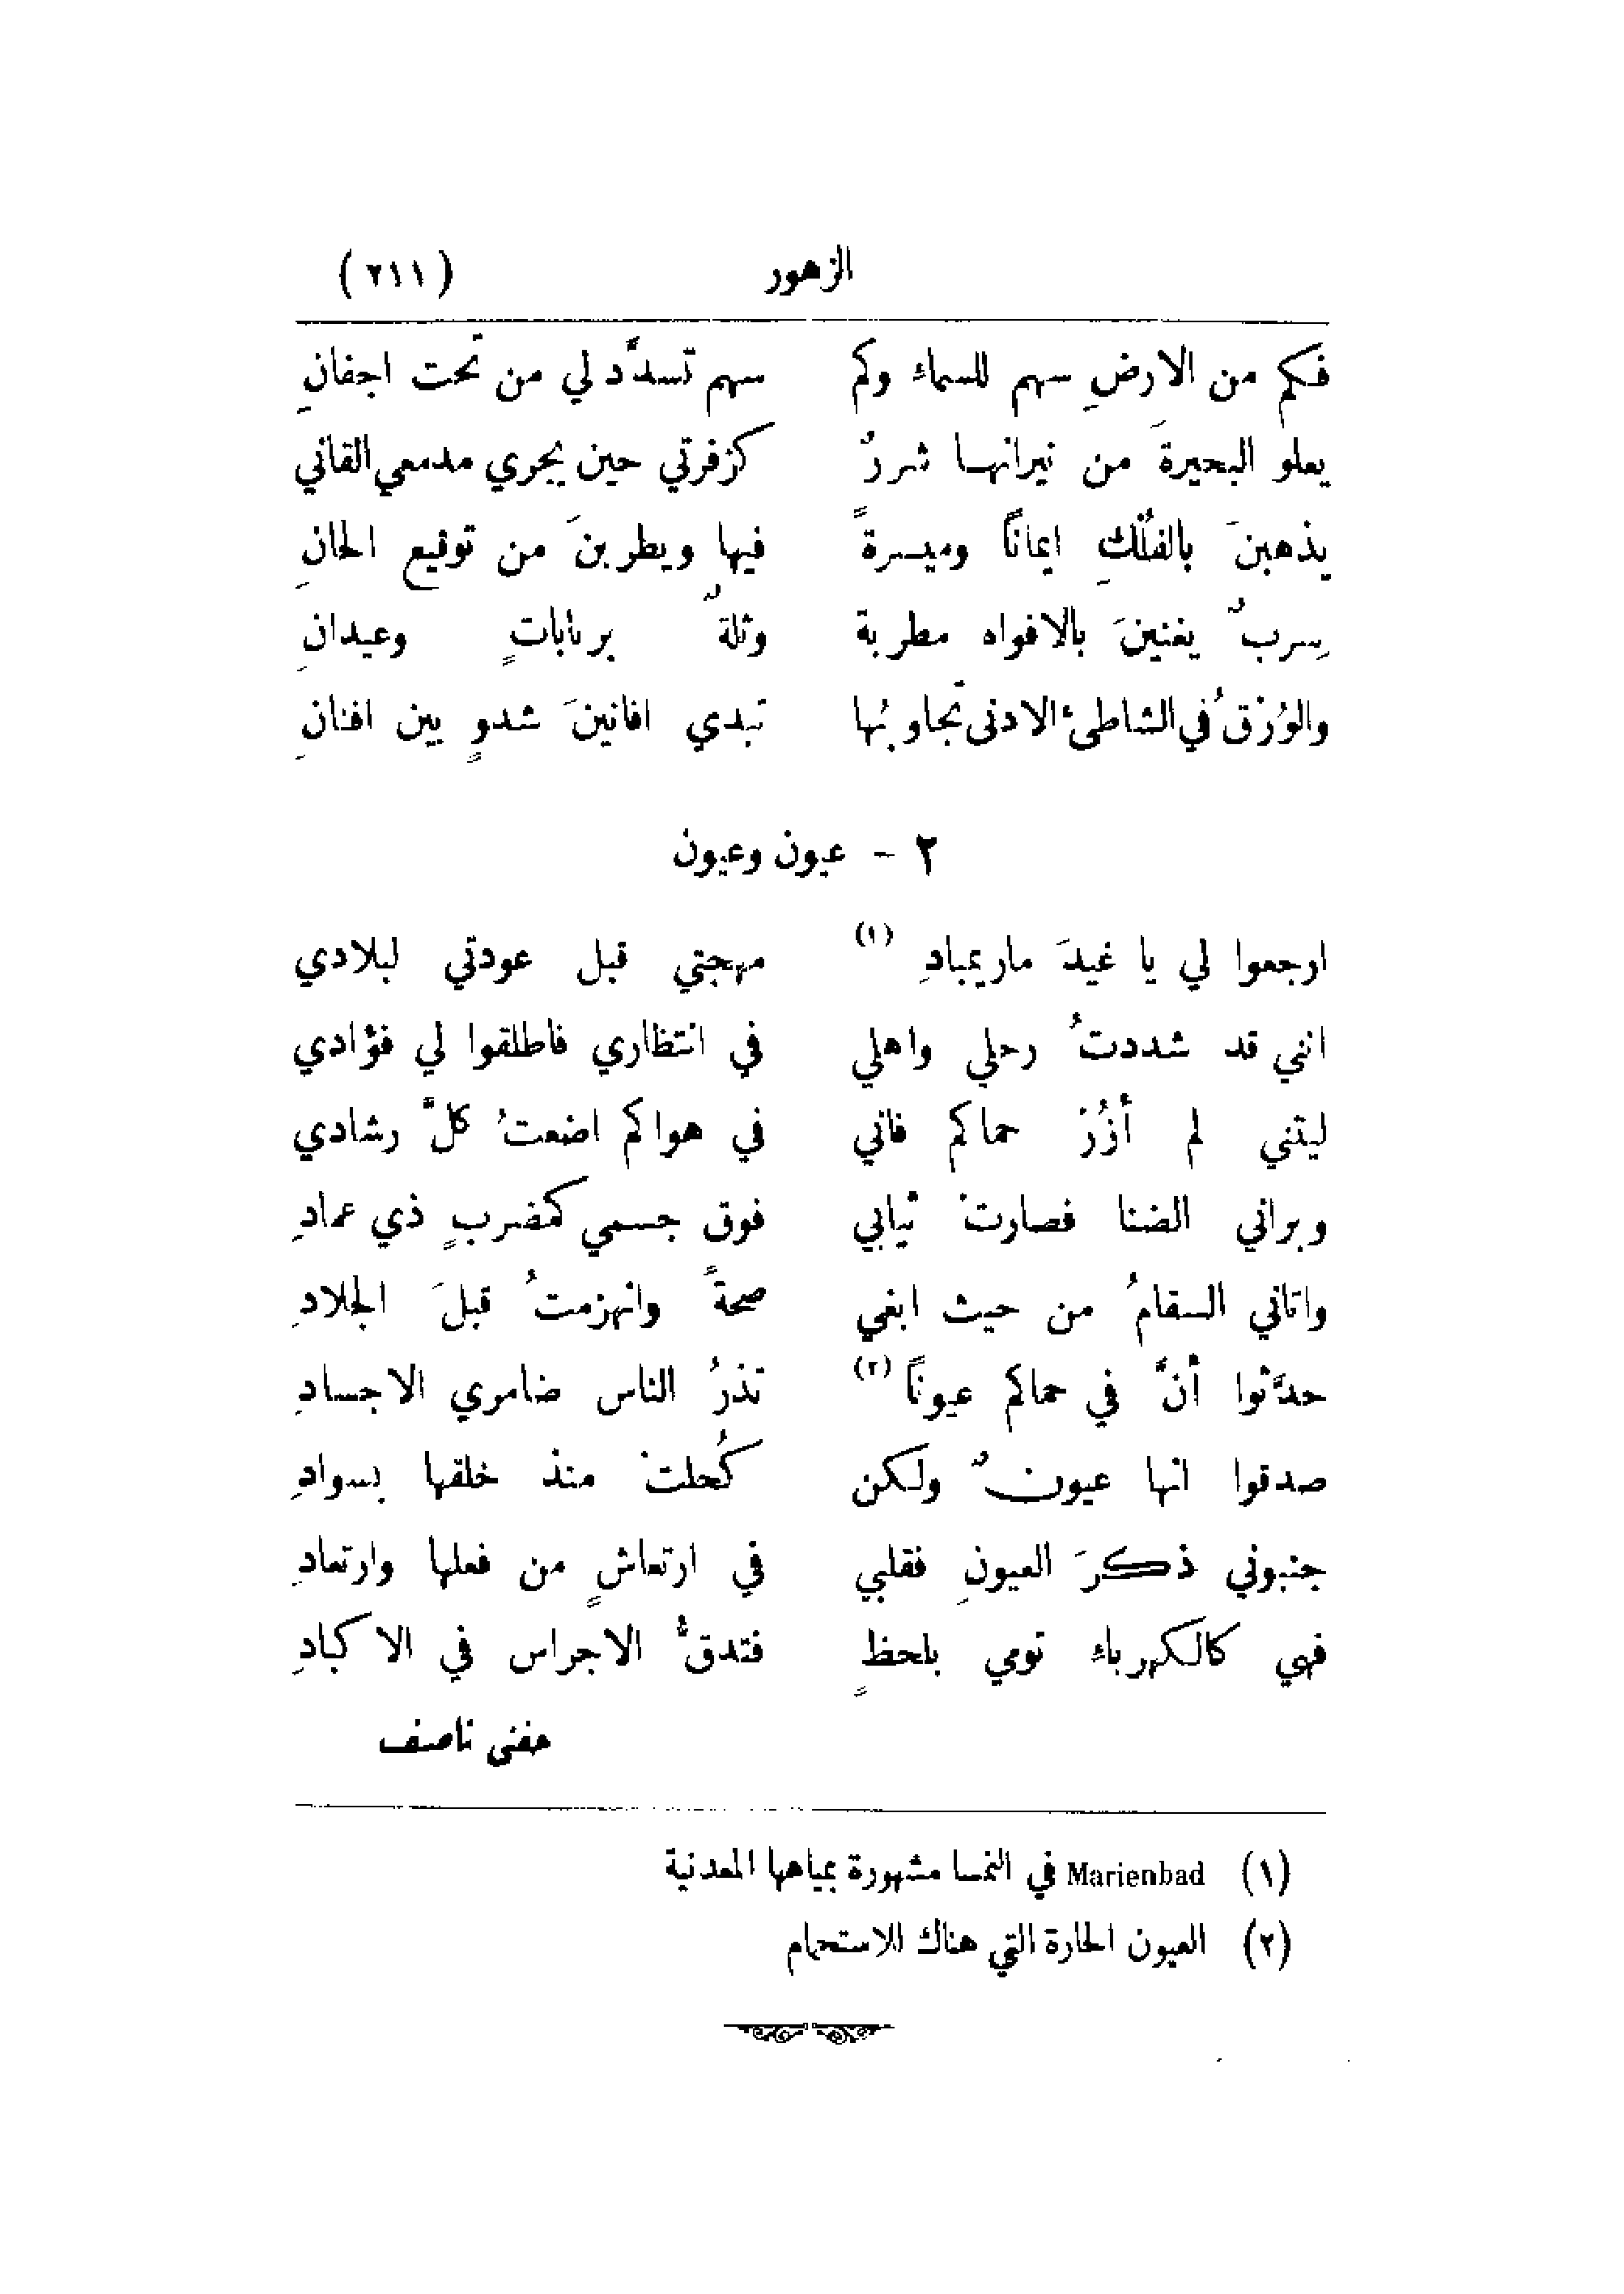 الزهور (٢١١)
فكم من الارضِ سهم للسماء وكم سهم تسدَّد لي من تحت اجفانِ
يعلو البحيرةَ من نيرانها شررٌ كزفرتي حين يجري مدمعي القاني
يذهبنَ بالفُلْكِ ايماناً وميسرةً فيها ويطربنَ من توقيع الحانِ
سِربٌ يغنينَ بالافواه مطربة وثلةٌ بربابات وعيدانِ
والوُرْقُ في الشاطئ الادنى تجاوبُها تبدي افانينَ شدوٍ بين افنانِ
٢ - عيون وعيون
ارجعوا لي يا غيدَ ماريمبادِ (١) مهجتي قبل عودتي لبلادي
انني قد شددتُ رحلي واهلي في انتظاري فاطلقوا لي فؤادي
ليتني لم أزُرْ حماكم فاني في هواكم اضعتُ كلَّ رشادي
وبراني الضنا فصارتْ ثيابي فوق جسمي كمضربٍ ذي عمادِ
واتاني السقامُ من حيث ابغي صحةً وانهزمتُ قبلَ الجلادِ
حدَّثوا أنَّ في حماكم عيوناً (٢) تذرُ الناس ضامري الاجسادِ
صدقوا انها عيونٌ ولكن كُحلتْ منذ خلقها بسوادِ
جنبوني ذكرَ العيونِ فقلبي في ارتعاشٍ من فعلها وارتعادِ
فهي كالكهرباء تومي بلحظٍ فتدقُّ الاجراس في الاكبادِ
حفني ناصف
(١) Marienbad في النمسا مشهورة بمياهها المعدنية
(٢) العيون الحارة التي هناك للاستحمام